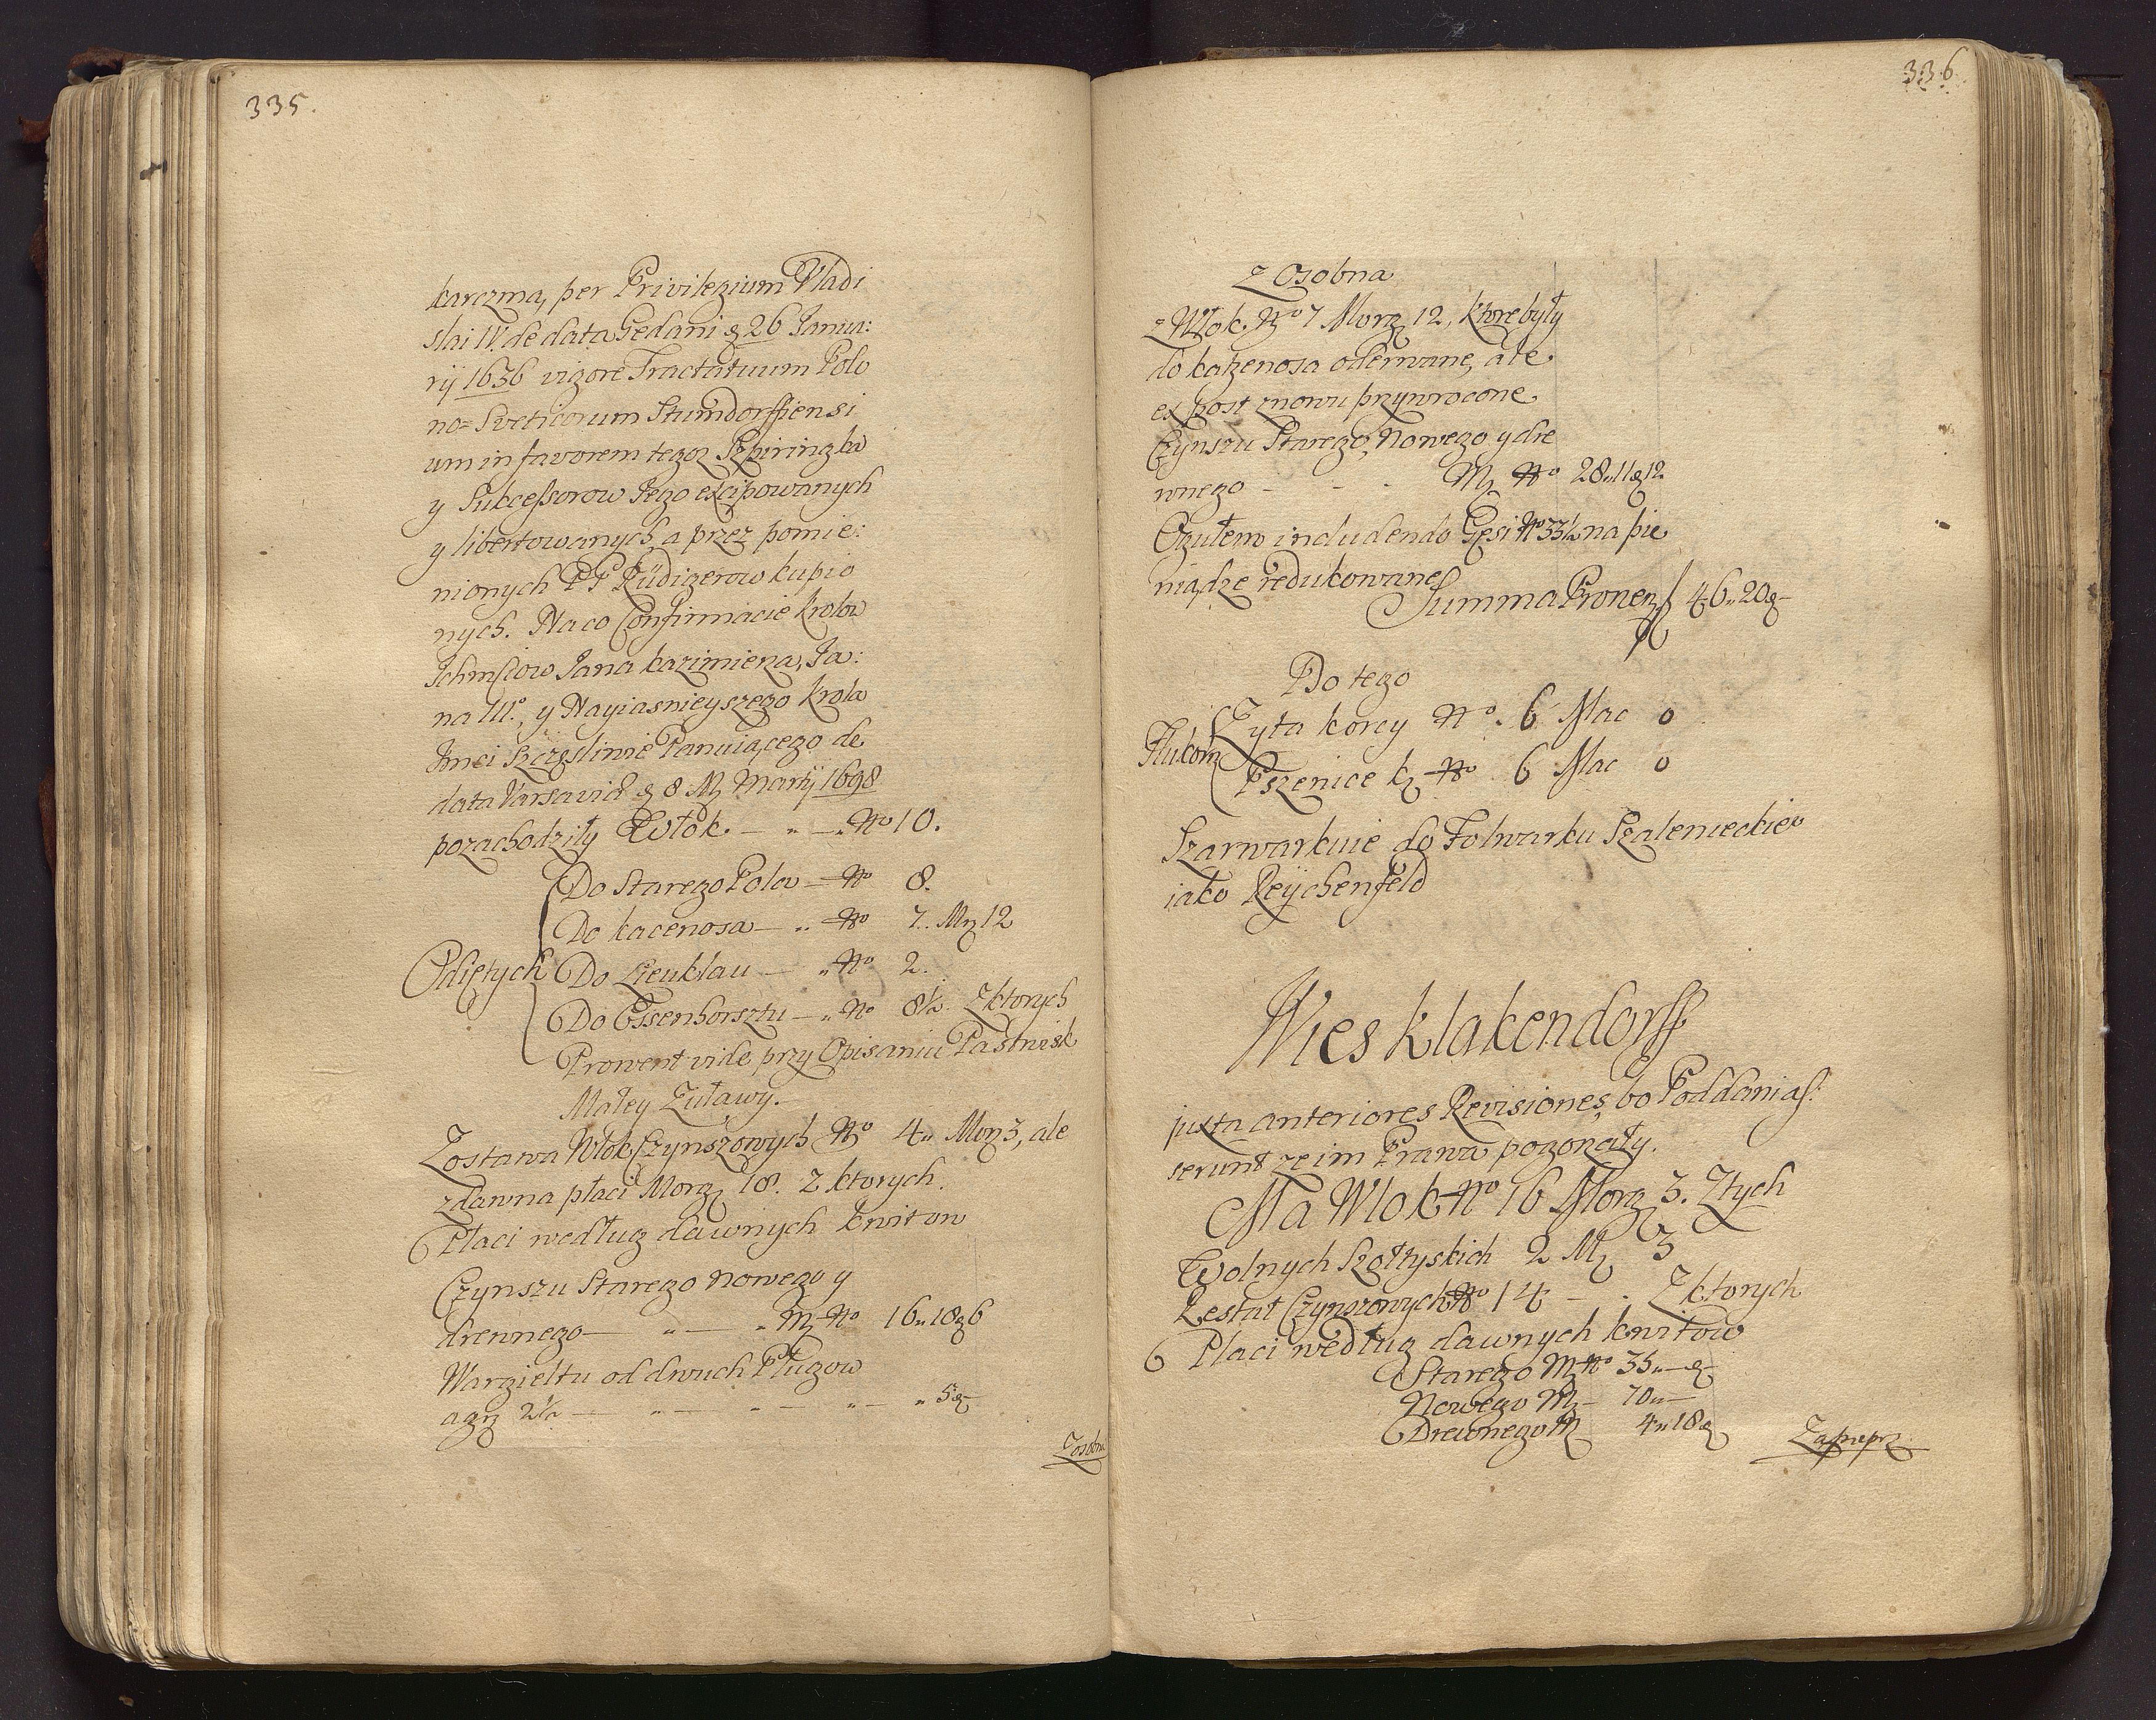 335.
karczma, per Privilegium Vladi
slai IV. de data Gedani g 26 Janua:
rij 1636 vigore Tractatuum Polo
no=Sveticorum Stumdorffiensi
um in favorem tegoz Szpiringka
y Sukcessorow Jego excipowanych
y libertowanych, a przez pomie:
nionych PP Rüdigerow kupio
nych. Na co Confirmacie Krolow
Ichmsciow Jana Kazimierza, Ja:
na III°, y Nayiasnieyszego Krola
Jmci szczęsliwie Panuiącego de
data Varsaviæ g 8 M Martij 1698
pozachodziły Włok. — „ — „ No 10.
Odiętych
Do Starego Pola — No 8.
Do Kacenosa — „ No 7. Mrg 12
Do Lieuklau — „ No 2.
Do Essenhorsztu — „ No 8½. Z ktorych
Prowent vide przy Opisaniu Pastwisk
Małey Zuławy.
Zostawa Włok Czynszowych No 4„ Morg 3, ale
zdawna płaci Morg 18. z ktorych.
Płaci według dawnych kwitow
Czynszu Starego Nowego y
drewnego — „ — „ M No 16„18g6
Wargieltu od dwuch Pługow
a gr 2½ — „ — „ — „ — „ 5g—
Zosobna
336
z Osobna
z Włok. No 7 Morg 12, ktore były
do katzenosa oderwane, ale
ex post znowu przywrocone
Czynszu Starego, Nowego y dre
wnego - - - M No 28„11g12
Ogułem includendo Gęsi No 33½ na pie
niądze redukowane
Summa Proven 46„20g—
Do tego
Zyta korcy No. 6 Mac 0
Pszenice k No 6 Mac 0
Szarwarkuie do Folwarku Szalenieckie°
iako Reÿchenfeld
Wies Klakendorff
juxta anteriores Revisiones, bo Poddani as:
serunt ze im Prawa pogorzały.
Ma Wlok No 16 Morg 3. Z tych
Wolnych Szołtyskich 2 M 3
Restat Czynszowych No 14 - . Z ktorych
Placi według dawnych kwitow
Starego M No 35„—g—
Nowego M — 70„—
Drewnego M 4„18g